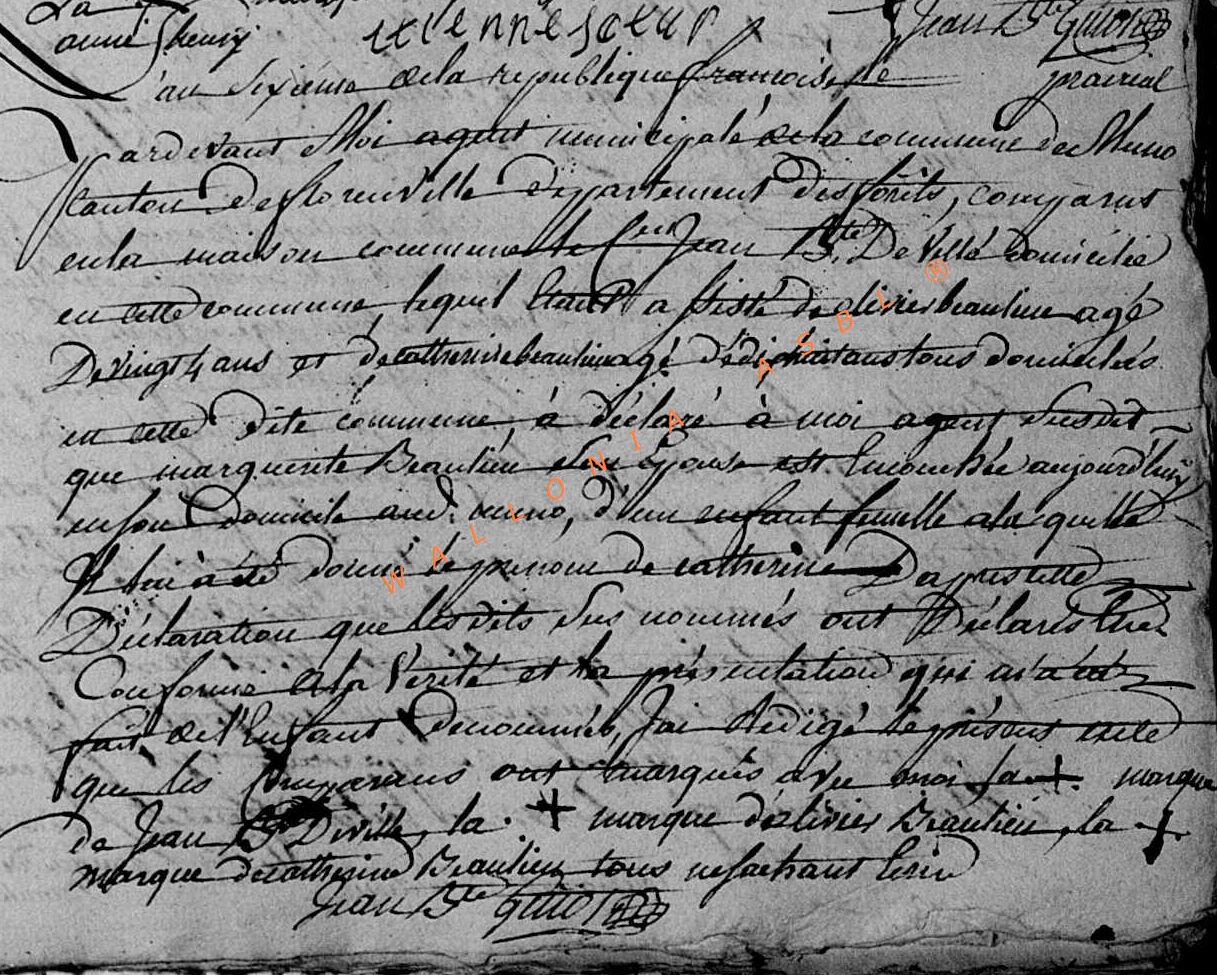 anne henry etiennejacur Jean Bte Guiot
an sixieme de la republique francoise, le prairial
Pardevant Moi agent municipale de la commune de Muno
Canton De florenville Departement Desforêts, comparus
en la maison commune le Cen Jean Bte. De Villé domicilié
en cette commune lequel Etant assisté de olivier beaulieu agé
De vingt 4 ans et de catherine beaulieu agé de dix huit ans tous domiciliés
en cette dite commune, à déclaré à moi agent susdit
que marguerite Beaulieu son Epouse est Encouchée aujourd'huy
en son Domicile aud. muno, D'un enfant femelle a laquelle
Il lui à été donné le prenom de catherine Dapres cette
Déclaration que lesdits sus nommés ont Déclarés Etre
Conforme a la Verité et la présentation qui m'a été
fait de l'Enfant denommés, J'ai Redigé le présent acte
que les Comparans ont marqués avec moi la + marque
de Jean Bte Deville, la + marque d'olivier Beaulieu, la +
marque de catherine Beaulieu tous ne sachant Ecrire
Jean Bte Guiot
WALLONIA ASBL ®